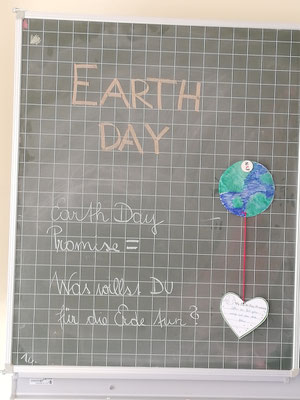 EARTH
DAY
Earth Day
Promise =
Was willst DU
für die Erde tun?